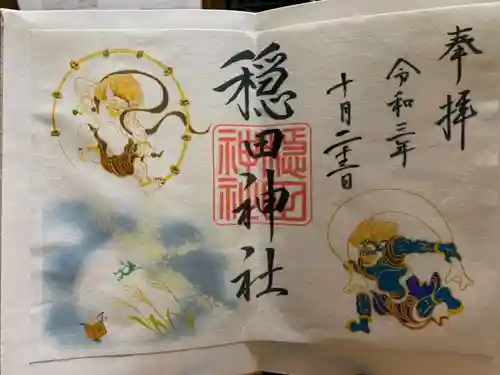 奉拝
令和三年
十月二十三日
穏田神社
穏田
神社